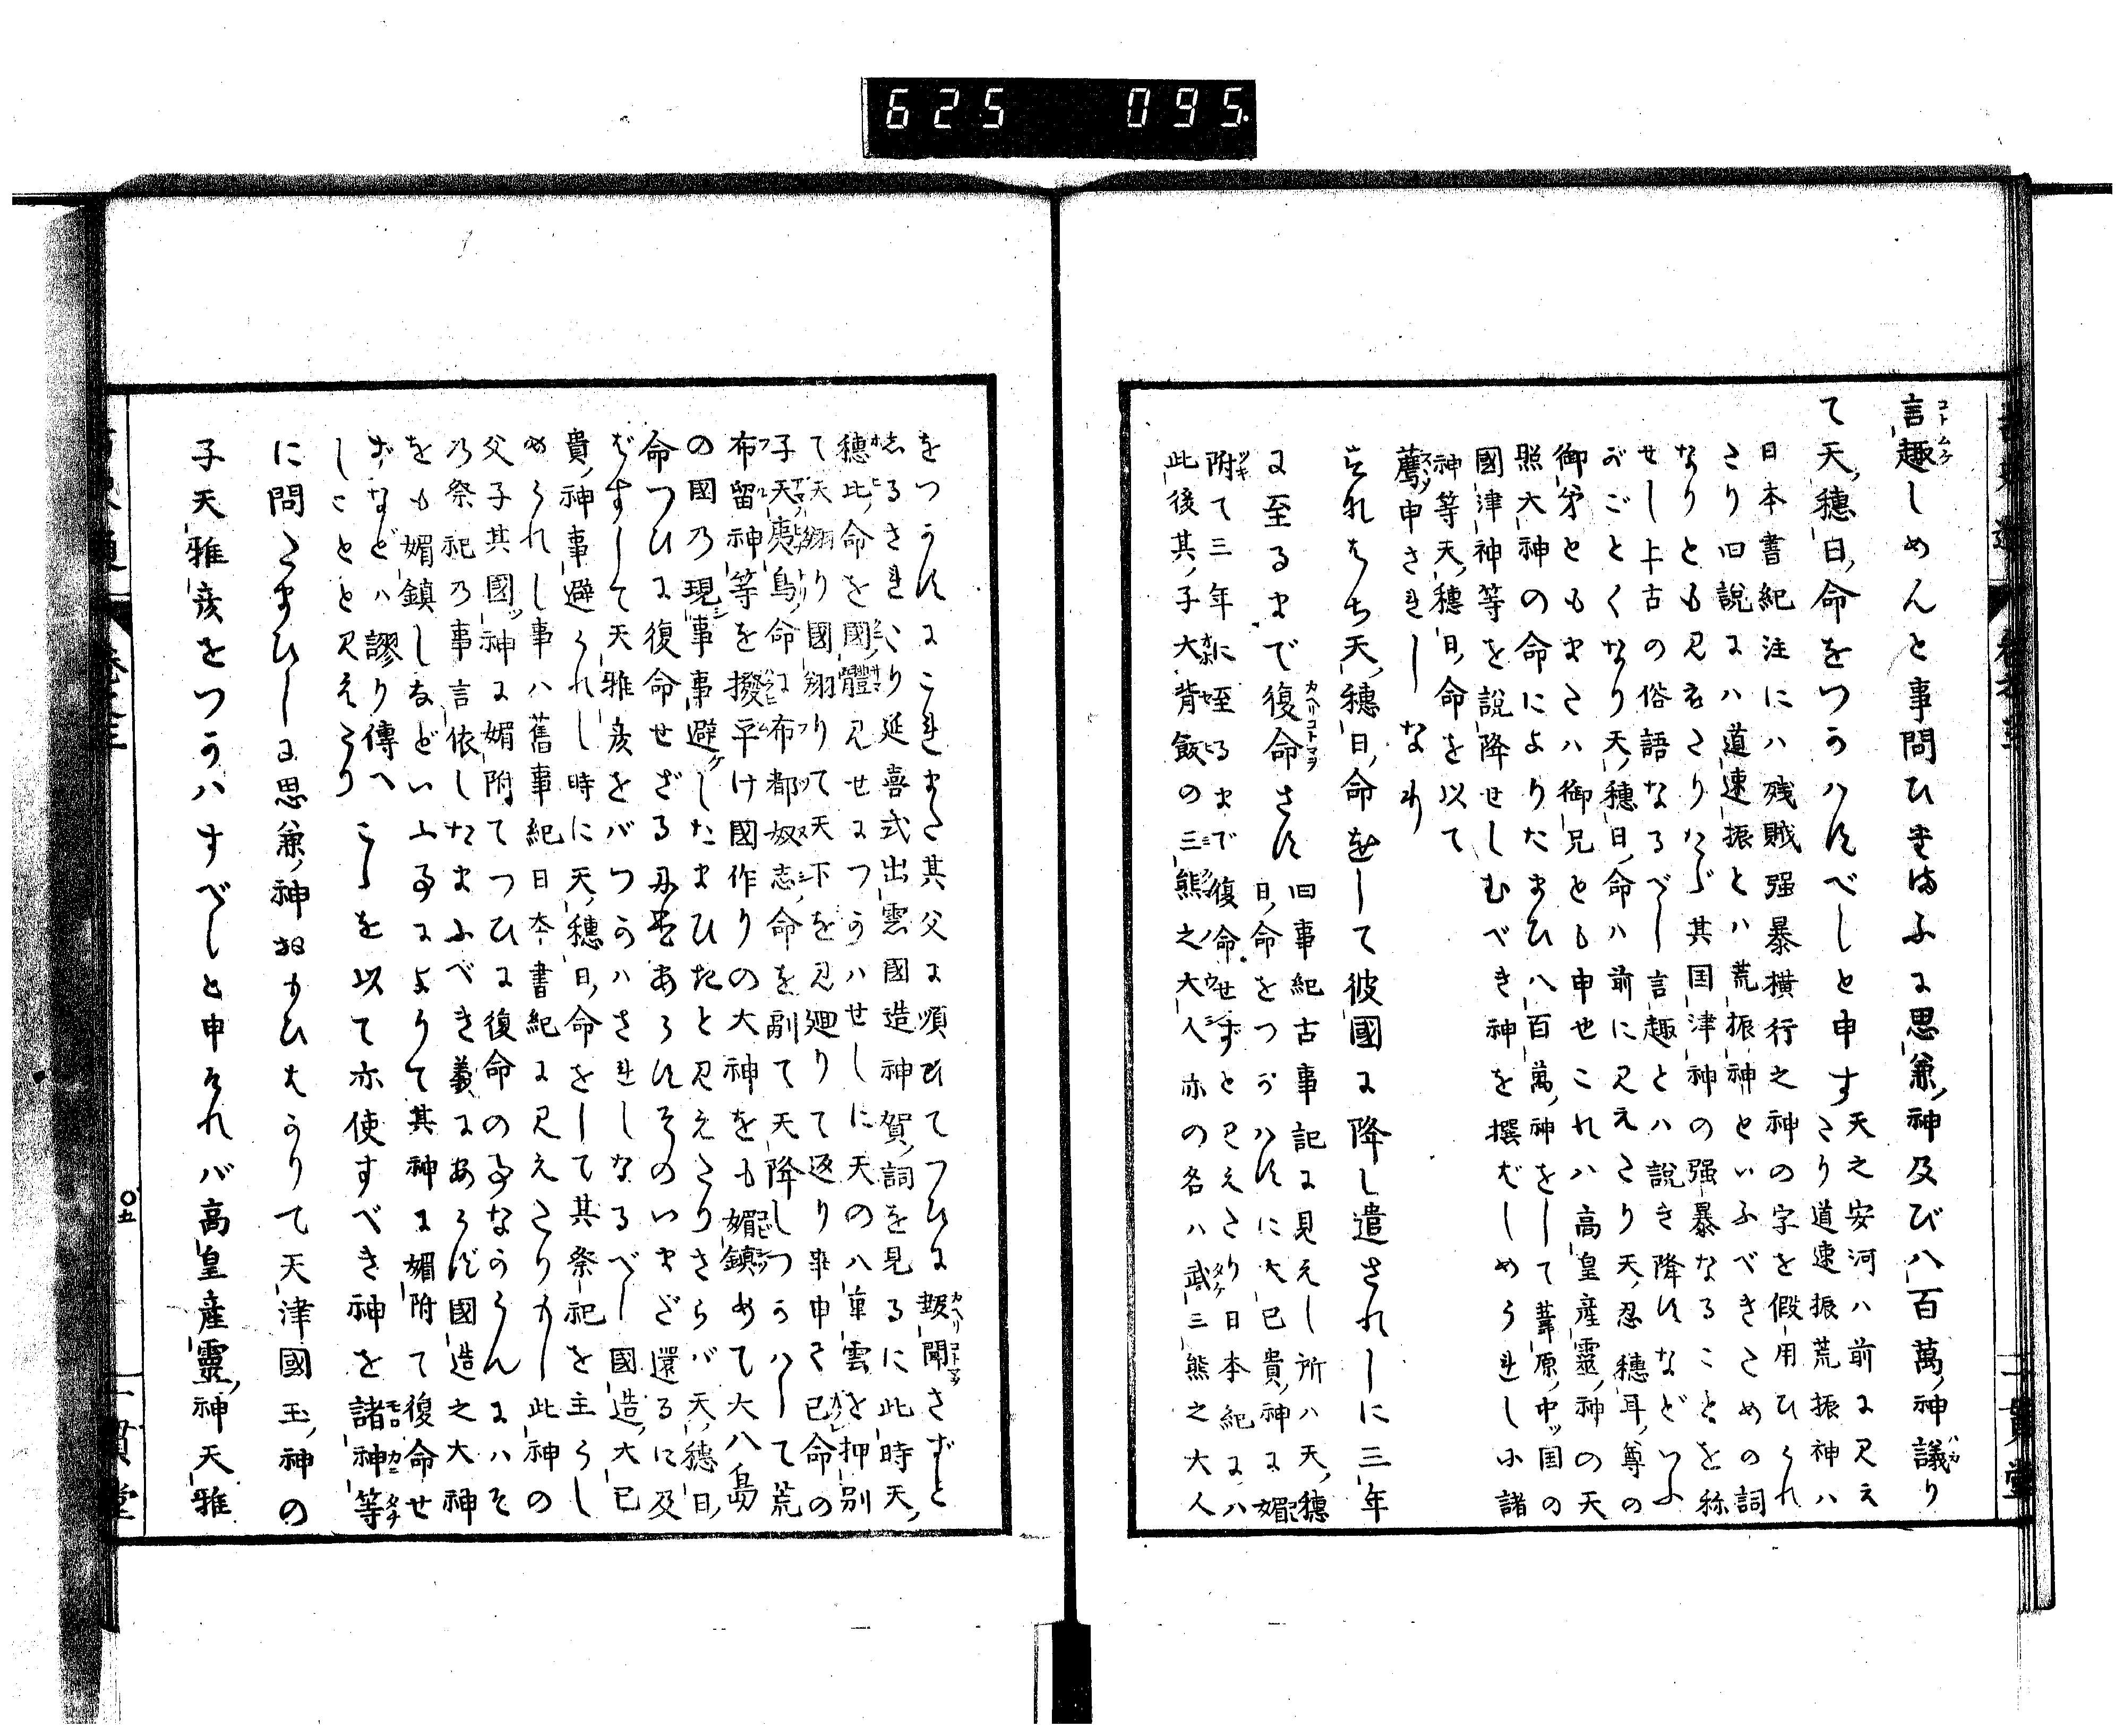 625 095
言趣しめんと事問ひ玉ふに思兼神及び八百萬神議り
て天穂日命をつかハすべしと申す 天之安河ハ前に見え
さり道速振荒振神ハ
日本書紀注にハ残賊强暴横行之神の字を假用ひられ
さり旧説にハ道速振とハ荒振神といふべきさめの詞
なりとも見えさりたゞ其国津神の强暴なることを称
せし上古の俗語なるべし言趣とハ説き降すなどいふ
がごとくなり天穂日命ハ前に見えさり天忍穂耳尊の
御弟ともまさハ御兄とも申也これハ高皇産靈神の天
照大神の命によりたまひ八百萬神をして葦原中国の
國津神等を説降せしむべき神を撰ばしめられし小諸
神等天穂日命を以て
薦申されしなり
すなはち天穂日命をして彼國に降し遣されしに三年
に至るまで復命さす 旧事紀古事記に見えし所ハ天穂
日命をつかハすに大己貴神に媚
附て三年に至るまで復命せずと見えさり日本紀にハ
此後其子大背飯の三熊之大人亦の名ハ武三熊之大人
をつかはすにこれまた其父に順ひてつひに報聞さずと
志るされたり延喜式出雲國造神賀詞を見るに此時天
穂比命を國體見せにつかハせしに天の八重雲を押別
て天翔り國翔りて天下を見廻りて返り事申て己命の
子天夷鳥命に布都奴志命を副て天降しつかハして荒
布留神等を撥平け國作りの大神をも媚鎮めて大八島
の國乃現事事避しめたまひたと見えさりさらバ天穂日
命つひに復命せざる而已あらすそのいまだ還るに及
ばずして天雅彦をバつかハされしなるべし國造大己
貴神事避られし時に天穂日命をして其祭祀を主らし
められし事ハ舊事紀日本書紀に見えさりかし此神の
父子其國神に媚附てつひに復命の事なからんにハそ
乃祭祀乃事言依したまふべき義にあらず國造之大神
をも媚鎮しなどいふ事によりて其神に媚附て復命せ
ずなどハ謬り傳へ
しことと見えたり こゝを以て亦使すべき神を諸神等
に問たまひしに思兼神おもひはかりて天津國玉神の
子天雅彦をつかハすべしと申されバ高皇産靈神天雅